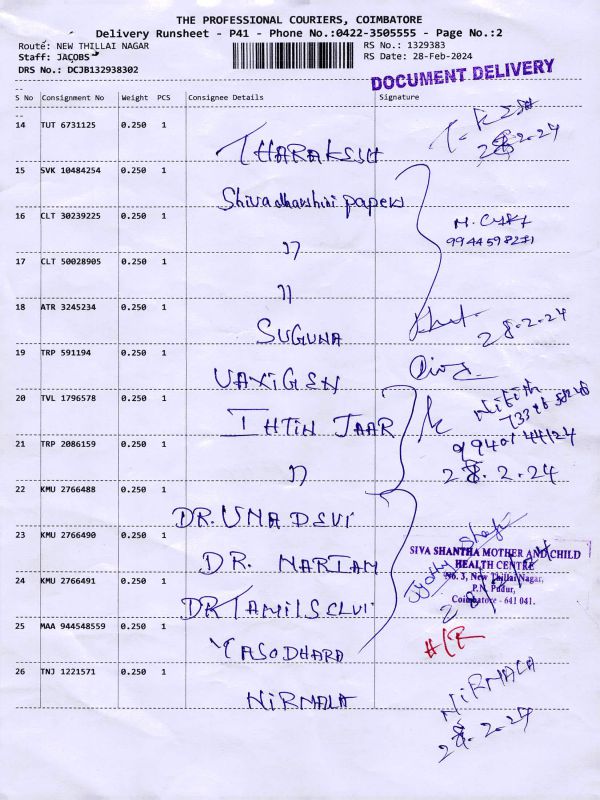 THE PROFESSIONAL COURIERS, COIMBATORE
Delivery Runsheet - P41 - Phone No.:0422-3505555 - Page No.:2
Route: NEW THILLAI NAGAR RS No.: 1329383
Staff: JACOBS RS Date: 28-Feb-2024
DRS No.: DCJB132938302
DOCUMENT DELIVERY
S No Consignment No Weight PCS Consignee Details Signature
14 TUT 6731125 0.250 1 THARAKSSH
28.2.24
15 SVK 10484254 0.250 1 Shivadharshini papers
16 CLT 30239225 0.250 1 "
17 CLT 50028905 0.250 1 "
18 ATR 3245234 0.250 1 SUGUNA 28.2.24
19 TRP 591194 0.250 1 VAXIGEN
20 TVL 1796578 0.250 1 IHTIN JAAR Nitith
21 TRP 2086159 0.250 1 " 9940144124
28.2.24
22 KMU 2766488 0.250 1 DR. UMA DEVI
23 KMU 2766490 0.250 1 DR. MARIAM
SIVA SHANTHA MOTHER AND CHILD
HEALTH CENTRE
No. 3, New Thillai Nagar,
P.N. Pudur,
Coimbatore - 641 041.
24 KMU 2766491 0.250 1 DR TAMILSELVI
25 MAA 944548559 0.250 1 YASODHARA
26 TNJ 1221571 0.250 1 NIRMALA NIRMALA
28.2.24